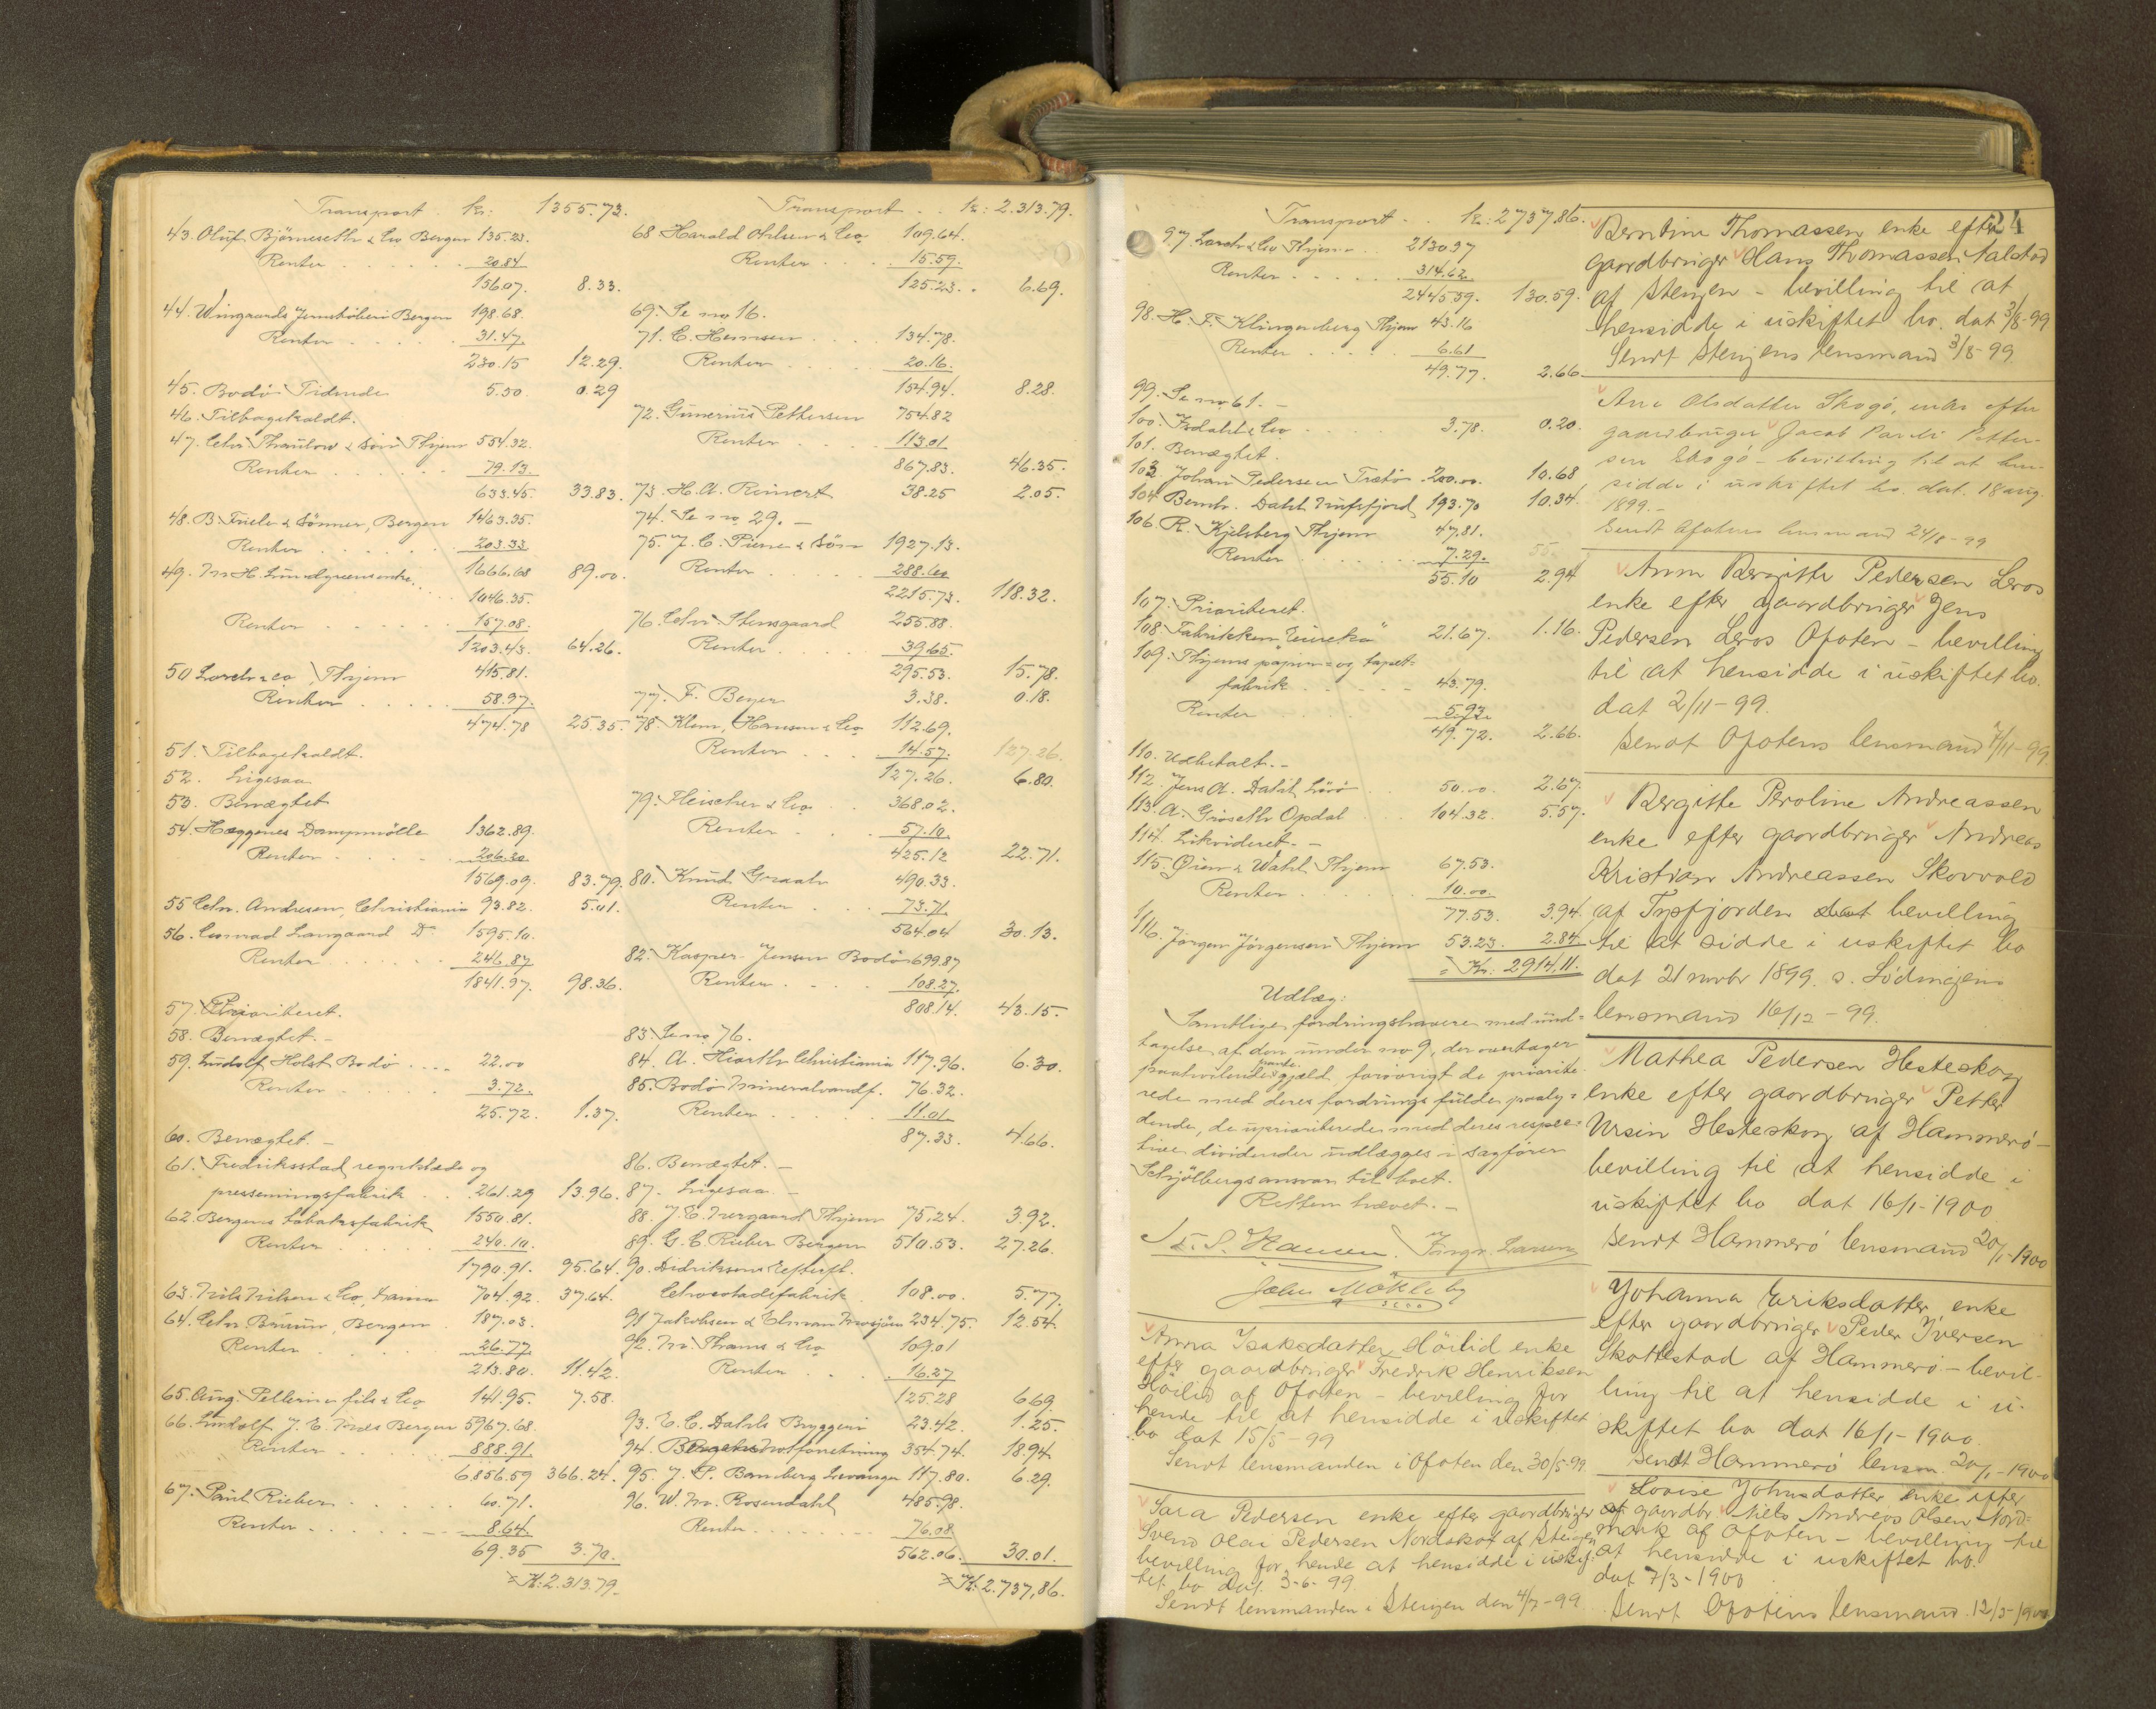 Transport. kr: 1355.73.
43. Oluf Björneseth & Co Bergen 135.23.
Renter 20.84
156.07. 8.33.
44. Wingaards Jernstöberi Bergen 198.68.
Renter 31.47.
230.15 12.29.
45. Bodö Tidende 5.50 0.29
46. Tilbagekaldt.
47. Chr. Thaulow & Sön Thjem 554.32.
Renter 79.13.
633.45. 33.83.
48. B Friele & Sönner, Bergen 1463.35.
Renter 203.33
1666.68 89.00.
49. M. H. Lundgreens enke
1046.35.
Renter 157.08.
1203.43. 64.26.
50 Lorch & co, Thjem 415.81.
Renter 58.97.
474.78 25.35.
51. Tilbagekaldt.
52. Ligesaa
53. Benægtet
54. Hæggenes Dampmölle 1362.89.
Renter 206.20
1569.09. 83.79.
55 Chr. Andresen, Christiania 93.82. 5.01.
56. Conrad Langaard Do 1595.10.
Renter 246.87
1841.97. 98.36.
57. Prioriteret.
58. Benægtet. -
59. Ludolf Holst Bodö 22.00
Renter 3.72.
25.72. 1.37.
60. Benægtet. -
61. Fredriksstad regnklæde og
presenningsfabrik 261.29 13.96.
62. Bergens tobaksfabrik 1550.81.
Renter 240.10.
1790.91. 95.64.
63. Nils Nilsen & Co, 704.92. 37.64.
64. Chr. Bruun, Bergen 187.03.
Renter 26.77
213.80. 11.42.
65. Aug. Pellerin fils & Co 141.95. 7.58.
66. Ludolf J. E. Bergen 5967.68.
Renter 888.91
6.856.59 366.24.
67. Paul Rieber 60.71.
Renter 8.64.
69.35 3.70.
= Kr: 2.313.79.
Transport kr: 2.313.79.
68 Harald Ohlsen & Co 109.64.
Renter 15.59.
125.23. 6.69.
69. Se no 16.
71. C. Hemsen 134.78.
Renter 20.16.
154.94. 8.28.
72. Gunerius Pettersen 754.82
Renter 113.01
867.83. 46.35.
73. H. A. Reinert 38.25 2.05.
74. Se no 29. -
75. J. C. Piene & Sön 1927.13.
Renter 288.60
2215.73. 118.32.
76. Chr. Stensgaard 255.88.
Renter 39.65.
295.53. 15.78.
77. F. Beyer 3.38. 0.18.
78. Klem, Hansen & Co 112.69.
Renter 14.57. 127.26.
127.26. 6.80.
79. Fleischer & Co 368.02.
Renter 57.10
425.12 22.71.
80. Knud Graah 490.33.
Renter 73.71.
564.04 30.13.
82. Kasper Jensen Bodö 699.87
Renter 108.27.
808.14. 43.15.
83. Se no 76.
84. A. Hiorth Christiania 117.96. 6.30.
85. Bodö mineralvandf. 76.32.
Renter 11.01
87.33. 4.66.
86. Benægtet. -
87. Ligesaa -
88. J. E. Thjem 75.24. 3.92.
89. G. C. Rieber Bergen 510.53. 27.26.
90. Didriksens Efterfl.
Chocoladefabrik 108.00. 5.77.
91 Jakobsen & Elman Mosjöen 234.75. 12.54.
92. M. Thams & Co 109.01
Renter 16.27
125.28 6.69.
93. E. C. Dahls Bryggeri 23.42. 1.25.
94. Bergens Notforretning 354.74. 18.94
95. J. S. Bamberg Levanger 117.80. 6.29.
96. W. M. Rosendahl 485.98.
Renter 76.08
562.06. 30.01.
= Kr: 2.737,86.
Transport kr: 2737.86.
97. Lorch & Co Thjem 2130.97
Renter 314.62
2445.59. 130.59.
98. H. F. Klingenberg Thjem 43.16
Renter 6.61
49.77. 2.66.
99. Se no 61. -
100. & Co 3.78. 0.20.
101. Benægtet.
103 Johan Pedersen Trætö 200.00. 10.68
104. Bernh. Dahl Tufjord 193.70 10.34.
106. R. Kjelsberg Thjem 47.81.
Renter 7.29. 55.
55.10 2.94
107. Prioriteret.
108. Fabrikken "Eureka" 21.67. 1.16.
109. Thjems papir= og tapet-
fabrik 43.79.
Renter 5.93
49.72. 2.66.
110. Udbetalt. -
112. Jens A. Dahl Lövö 50.00. 2.67.
113. A. Gröseth Opdal 104.32. 5.57.
114. Likvideret. -
115. Öien & Wahl Thjem 67.53.
Renter 10.00.
77.53. 3.94.
116. Jörgen Jörgensen Thjem 53.23. 2.84.
= Kr: 2914,11.
Udlæg:
Samtlige fordringshavere med und=
tagelse af den under no 9, der overtager
paahvilende pante gjæld, forövrigt de priorite-
rede med deres fordrings fulde paaly=
dende, de uprioriterede med deres respec=
tive dividender udlægges i sagförer
Schjölbergs ansvar til boet.
Retten hævet. -
S. Hansen. Ingv. Larsen
John Mökleby
Anna Isaksdatter Höilid enke
efter gaardbruger Fredrik Henriksen
Höilid af Ofoten - bevilling for
hende til at hensidde i uskiftet
bo dat 15/5-99
Sendt lensmanden i Ofoten den 30/5-99
Sara Pedersen enke efter gaardbruger
Svend Olai Pedersen Nordskot af Steigen
bevilling for hende at hensidde i uskif-
tet bo dat. 3-6-99
Sendt lensmanden i Steigen den 4/7-99
24
Berntine Thomassen enke efter
gaardbruger Hans Thomassen Aalstad
af Steigen - bevilling til at
hensidde i uskiftet bo. dat 3/8-99
Sendt Steigens lensmand 3/8-99
Ane Olsdatter Skogö, enke efter
gaardbruger Jacob Pareli Petter-
sen Skogö - bevilling til at hen-
sidde i uskiftet bo. dat. 18 aug.
1899. -
Sendt Ofotens lensmand 24/8-99
Anne Bergitte Pedersen Leros
enke efter gaardbruger Jens
Pedersen Leros Ofoten - bevilling
til at hensidde i uskiftet bo.
dat 2/11-99.
Sendt Ofotens lensmand 7/11-99.
Bergitte Peroline Andreassen
enke efter gaardbruger Andreas
Kristian Andreassen Skovvold
af Tysfjorden bevilling
til at sidde i uskiftet bo
dat 21 novbr 1899. s. Lödingens
lensmand 16/12-99.
Mathea Pedersen Hesteskog
enke efter gaardbruger Petter
Ursin Hesteskog af Hammerö -
bevilling til at hensidde i
uskiftet bo dat 16/1-1900
Sendt Hammerö lensmand 20/1-1900
Johanna Eriksdatter, enke
efter gaardbruger Peder Iversen
Skottestad af Hammerö - bevil-
ling til at hensidde i u-
skiftet bo dat 16/1-1900.
Sendt Hammerö lensm. 20/1-1900
Lovise Johnsdatter enke efter
gaardbr. Niels Andreas Olsen Nord=
mark af Ofoten - bevilling til
at hensidde i uskiftet bo.
dat 7/3-1900
Sendt Ofotens lensmand 12/3-1900